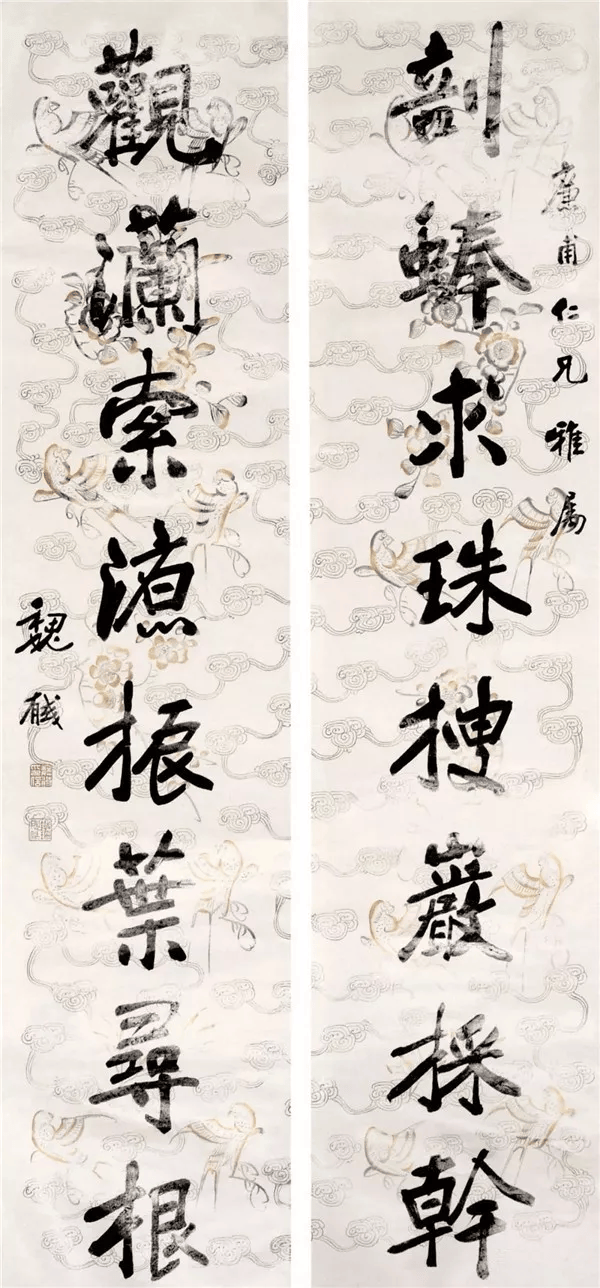 廉甫仁兄雅属
剖蜯求珠搜巖採幹
觀瀾索源振葉尋根
魏戫